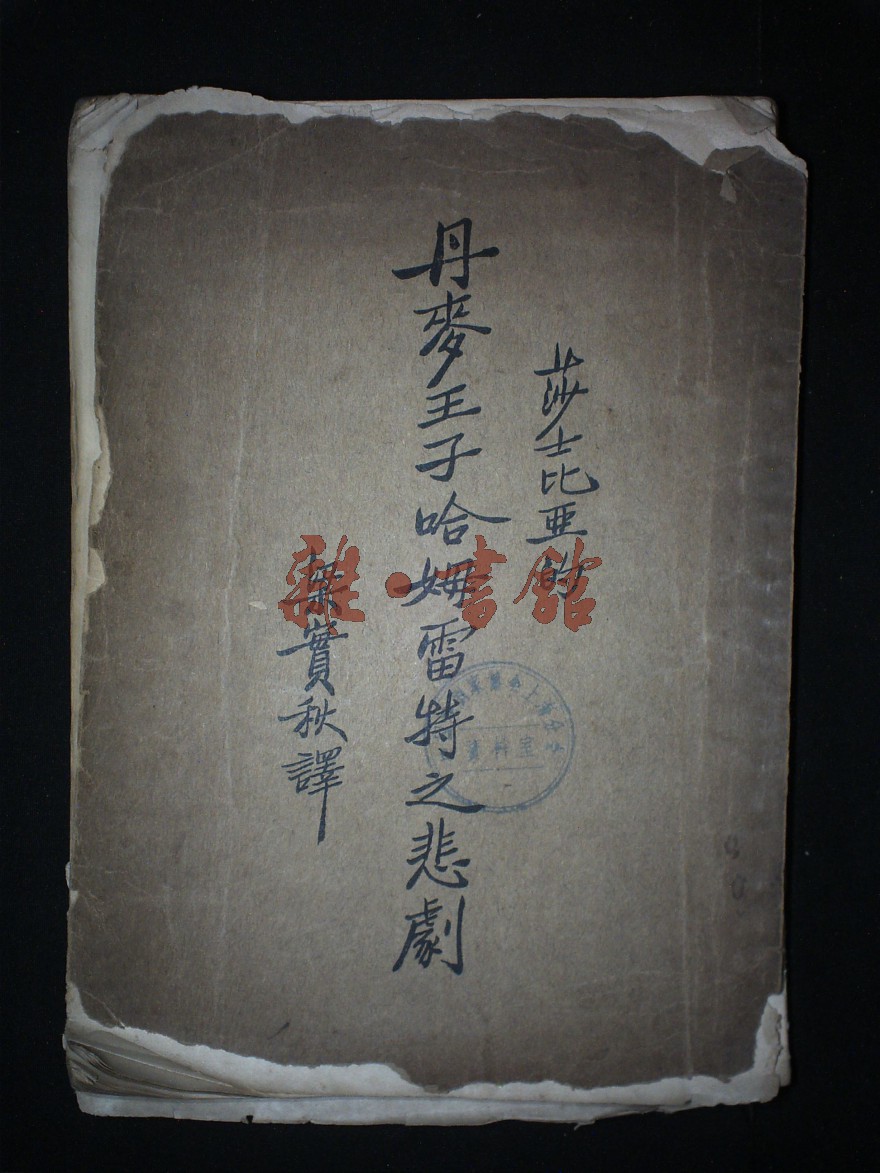 莎士比亞的
丹麥王子哈姆雷特之悲劇
梁實秋譯
雜·書館
資料室